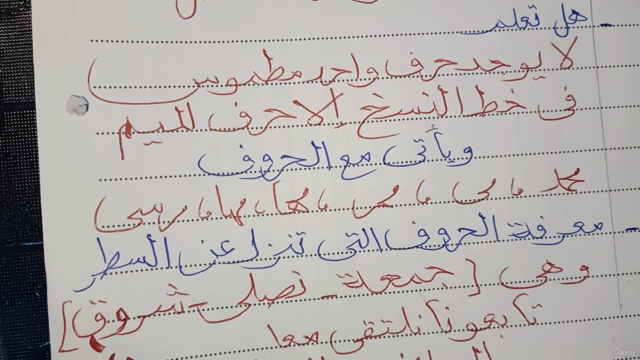 - هل تعلم
لا يوجد حرف واحد مطموس
فى خط النسخ إلا حرف الميم
ويأتى مع الحروف
محمد، مى، مر، مها، بها، مرسى
- معرفة الحروف التى تنزل عن السطر
وهى [جمعة - نصلى - شروق]
تابعونا نلتقى معا